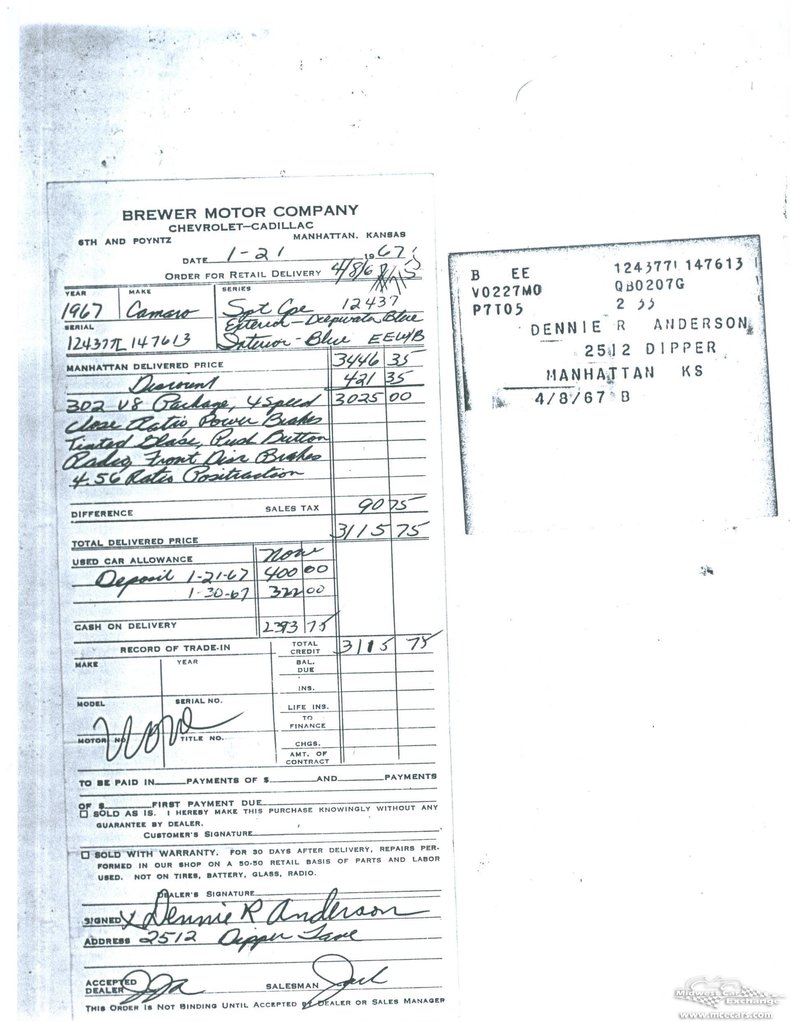 BREWER MOTOR COMPANY
CHEVROLET—CADILLAC
6TH AND POYNTZ MANHATTAN, KANSAS
DATE 1-21 1967
ORDER FOR RETAIL DELIVERY 4/8/67
YEAR MAKE SERIES
1967 Camaro Spt Cpe 12437
Exterior - Deepwater Blue
SERIAL
124377L147613 Interior - Blue EEW/B
MANHATTAN DELIVERED PRICE 3446 35
Discount 421 35
302 V8 Package, 4 Speed 3025 00
Close Ratio, Power Brakes
Tinted Glass, Push Button
Radio, Front Disc Brakes
4.56 Ratio Positraction
DIFFERENCE SALES TAX 90 75
TOTAL DELIVERED PRICE 3115 75
USED CAR ALLOWANCE None
Deposit 1-21-67 400 00
1-30-67 322 00
CASH ON DELIVERY 2393 75
RECORD OF TRADE-IN TOTAL CREDIT 3115 75
MAKE YEAR BAL. DUE
INS.
MODEL SERIAL NO. LIFE INS.
None
TO FINANCE
MOTOR NO. TITLE NO. CHGS.
AMT. OF CONTRACT
TO BE PAID IN PAYMENTS OF $ AND PAYMENTS
OF $ FIRST PAYMENT DUE
SOLD AS IS. I HEREBY MAKE THIS PURCHASE KNOWINGLY WITHOUT ANY
GUARANTEE BY DEALER.
CUSTOMER'S SIGNATURE
SOLD WITH WARRANTY. FOR 30 DAYS AFTER DELIVERY, REPAIRS PER-
FORMED IN OUR SHOP ON A 50-50 RETAIL BASIS OF PARTS AND LABOR
USED. NOT ON TIRES, BATTERY, GLASS, RADIO.
DEALER'S SIGNATURE
SIGNED X Dennie R Anderson
ADDRESS 2512 Dipper Lane
ACCEPTED
DEALER SALESMAN Jack
THIS ORDER IS NOT BINDING UNTIL ACCEPTED BY DEALER OR SALES MANAGER
B EE 124377L147613
V0227MO QB0207G
P7T05 2 33
DENNIE R ANDERSON
2512 DIPPER
MANHATTAN KS
4/8/67 B
Midwest Car Exchange
www.mcecars.com